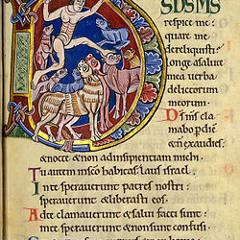 DSDSMS
respice me:
quare me
dereliquisti:
longe a salute
mea verba
delictorum
meorum.
Ds ms cla
mabo p die
& n exaudies:
& nocte & non ad insipientiam michi.
Tu autem in sco habitas laus israel.
In te speraverunt patres nostri:
speraverunt & liberasti eos.
Ad te clamaverunt & salvi facti sunt:
in te speraverunt & non sunt confusi.